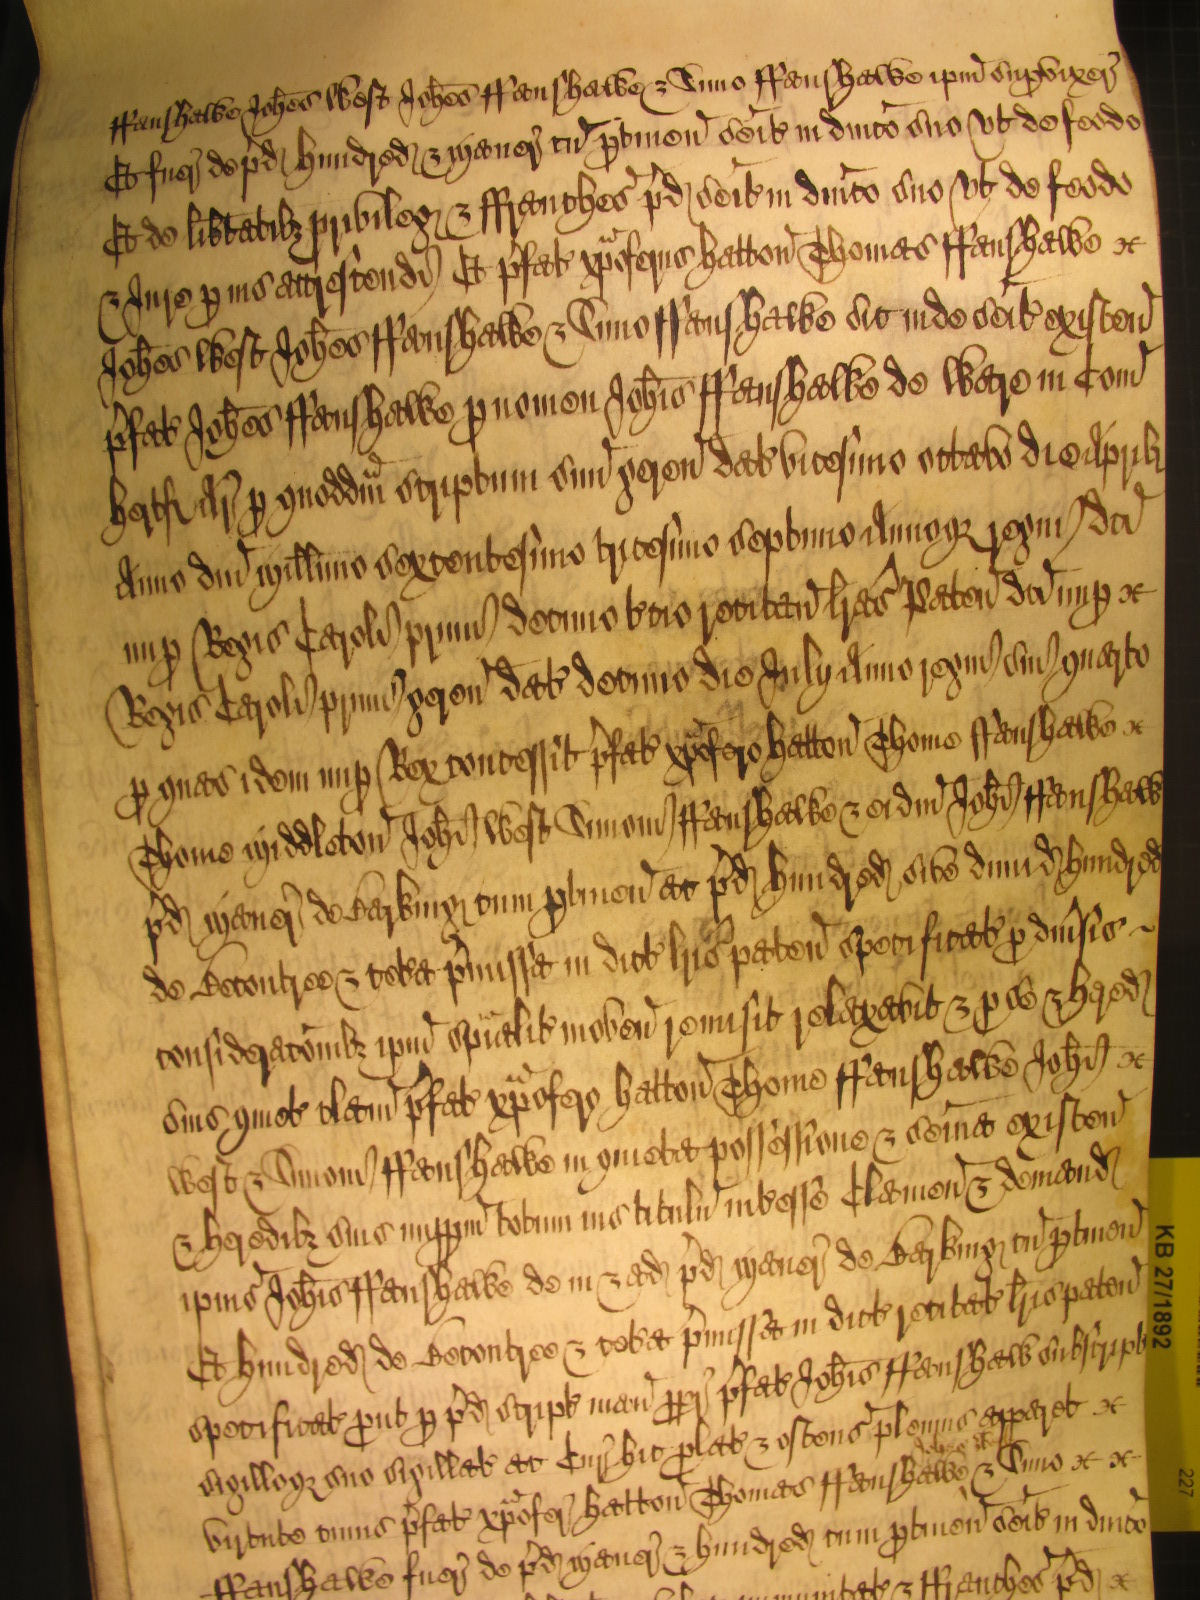 ffanshawe Joh̃es West Joh̃es ffanshawe & Simo ffanshawe ip̃m sup̱vixer̃
Et fuer̃ de p̃d hundred & maner̃ cũ p̱tineñ seit̃ in dnico suo vt de feodo
Et de lib̃tatib3 privileg̃ & ffranches̃ p̃d seit̃ in dnico suo vt de feodo
& Jure p̱ ius accrescendi Et p̃fat̃ xp̃oferus hatton Thomas ffanshawe &
Joh̃es West Joh̃es ffanshawe & Simo ffanshawe sic inde seit̃ existeñ
p̃fat̃ Joh̃es ffanshawe p̱ nomen Joh̃is ffanshawe de Ware in Com̃
hertf Ar̃ p̱ quoddm̃ scriptum suũ gereñ dat̃ vicesimo octavo die Aprilis
Anno dñi millimo sexcentesimo tricesimo septimo Annoq3 regni dc̃i
nup̱ Regis Caroli primi decimo t̃cio recitañ l̃ras Pateñ dc̃i nup̱ &
Regis Caroli primi gereñ dat̃ decimo die July Anno regni sui quarto
p̱ quas idem nup̱ Rex concessit p̃fat̃ xp̃ofero hatton Thome ffanshawe &
Thome Middleton Joh̃i West Simoni ffanshawe & eidm̃ Joh̃i ffanshawe
p̃d maner̃ de Barking cum p̱tineñ ac p̃d hundred sive dimid hundred
de Becontree & cet̃a p̃missa in dict̃ l̃ris pateñ specificat̃ p̱ diũsis
consideracõnib3 ip̃m sp̃ialit̃ moveñ remisit relaxavit & p̱ se & hered
suis quiet̃ clam̃ p̃fat̃ xp̃ofero hatton Thome ffanshawe Joh̃i &
West & Simoni ffanshawe in quieta possessione & seĩa existeñ
& heredib3 suis imp̱pm̃ totum ius titulũ int̃esse Clameñ & demand
ipius Joh̃is ffanshawe de in & ad p̃d maner̃ de Barking cũ p̱tineñ
Et hundred de Becontree & cet̃a p̃missa in dict̃ recitat̃ l̃ris pateñ
specificat̃ prout p̱ p̃d script̃ manũ p̱pr̃ p̃fat̃ Joh̃is ffanshawe subscript̃
sigilloq3 suo sigillat̃ ac Cur̃ hic plat̃ & ostens̃ plenius apparet &
virtute cuius p̃fat̃ xp̃ofer̃ hatton Thomas ffanshawe Joh̃es West & Simo & &
ffanshawe fuer̃ de p̃d maner̃ & hundred cum p̱tineñ seit̃ in dnico
immunitat̃ & ffranches̃ p̃d &
KB 27/1892
227